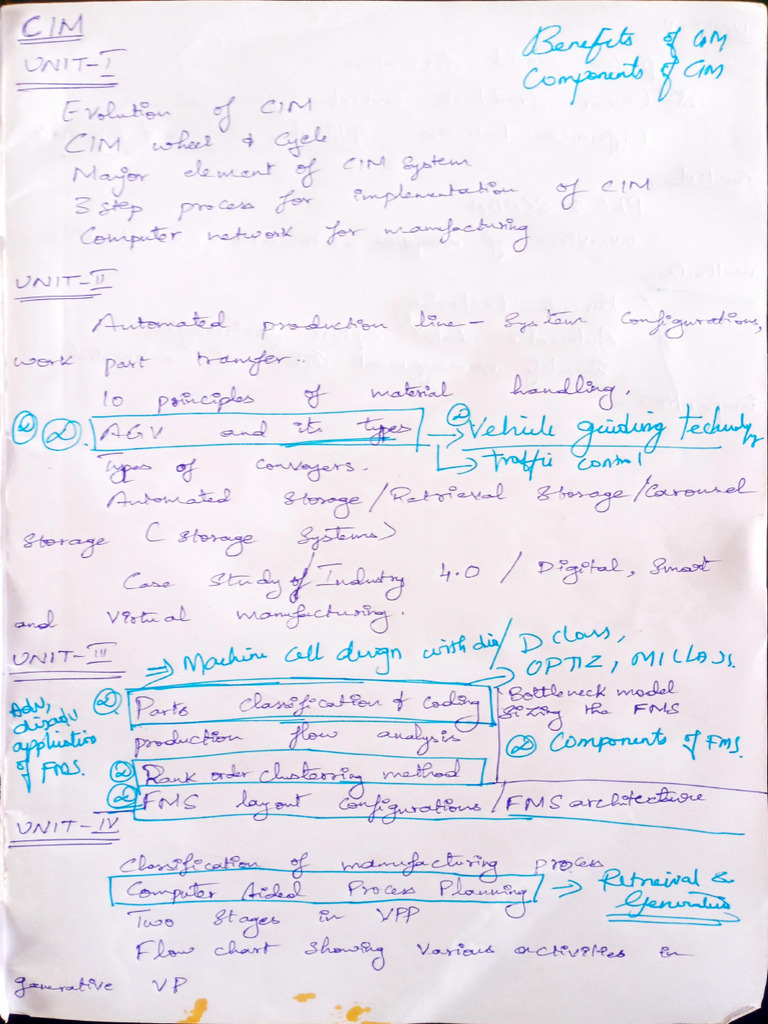 CIM
Benefits of CIM
Components of CIM
UNIT-I
Evolution of CIM
CIM wheel & Cycle
Major element of CIM System
3 step process for implementation of CIM
Computer network for manufacturing
UNIT-II
Automated production line - System Configurations,
work part transfer..
10 principles of material handling.
② ② AGV and its types → ② Vehicle guiding technology
→ Traffic control
Types of conveyers.
Automated Storage/Retrieval Storage/Carousel
Storage (Storage Systems)
Case Study of Industry 4.0 / Digital, Smart
and Virtual manufacturing.
UNIT-III
⇒ Machine cell design with / D class,
OPTIZ, MICLASS.
② Parts classification & coding
Bottleneck model
Sizing the FMS
Adv,
disadv
application
of FMS.
production flow analysis
② Components of FMS.
② Rank order clusterring method
② FMS layout configurations / FMS architecture
UNIT-IV
Classification of manufacturing process
Computer Aided Process Planning ⇒ Retrieval &
Generative
Two Stages in VPP
Flow chart showing various activities in
generative VP